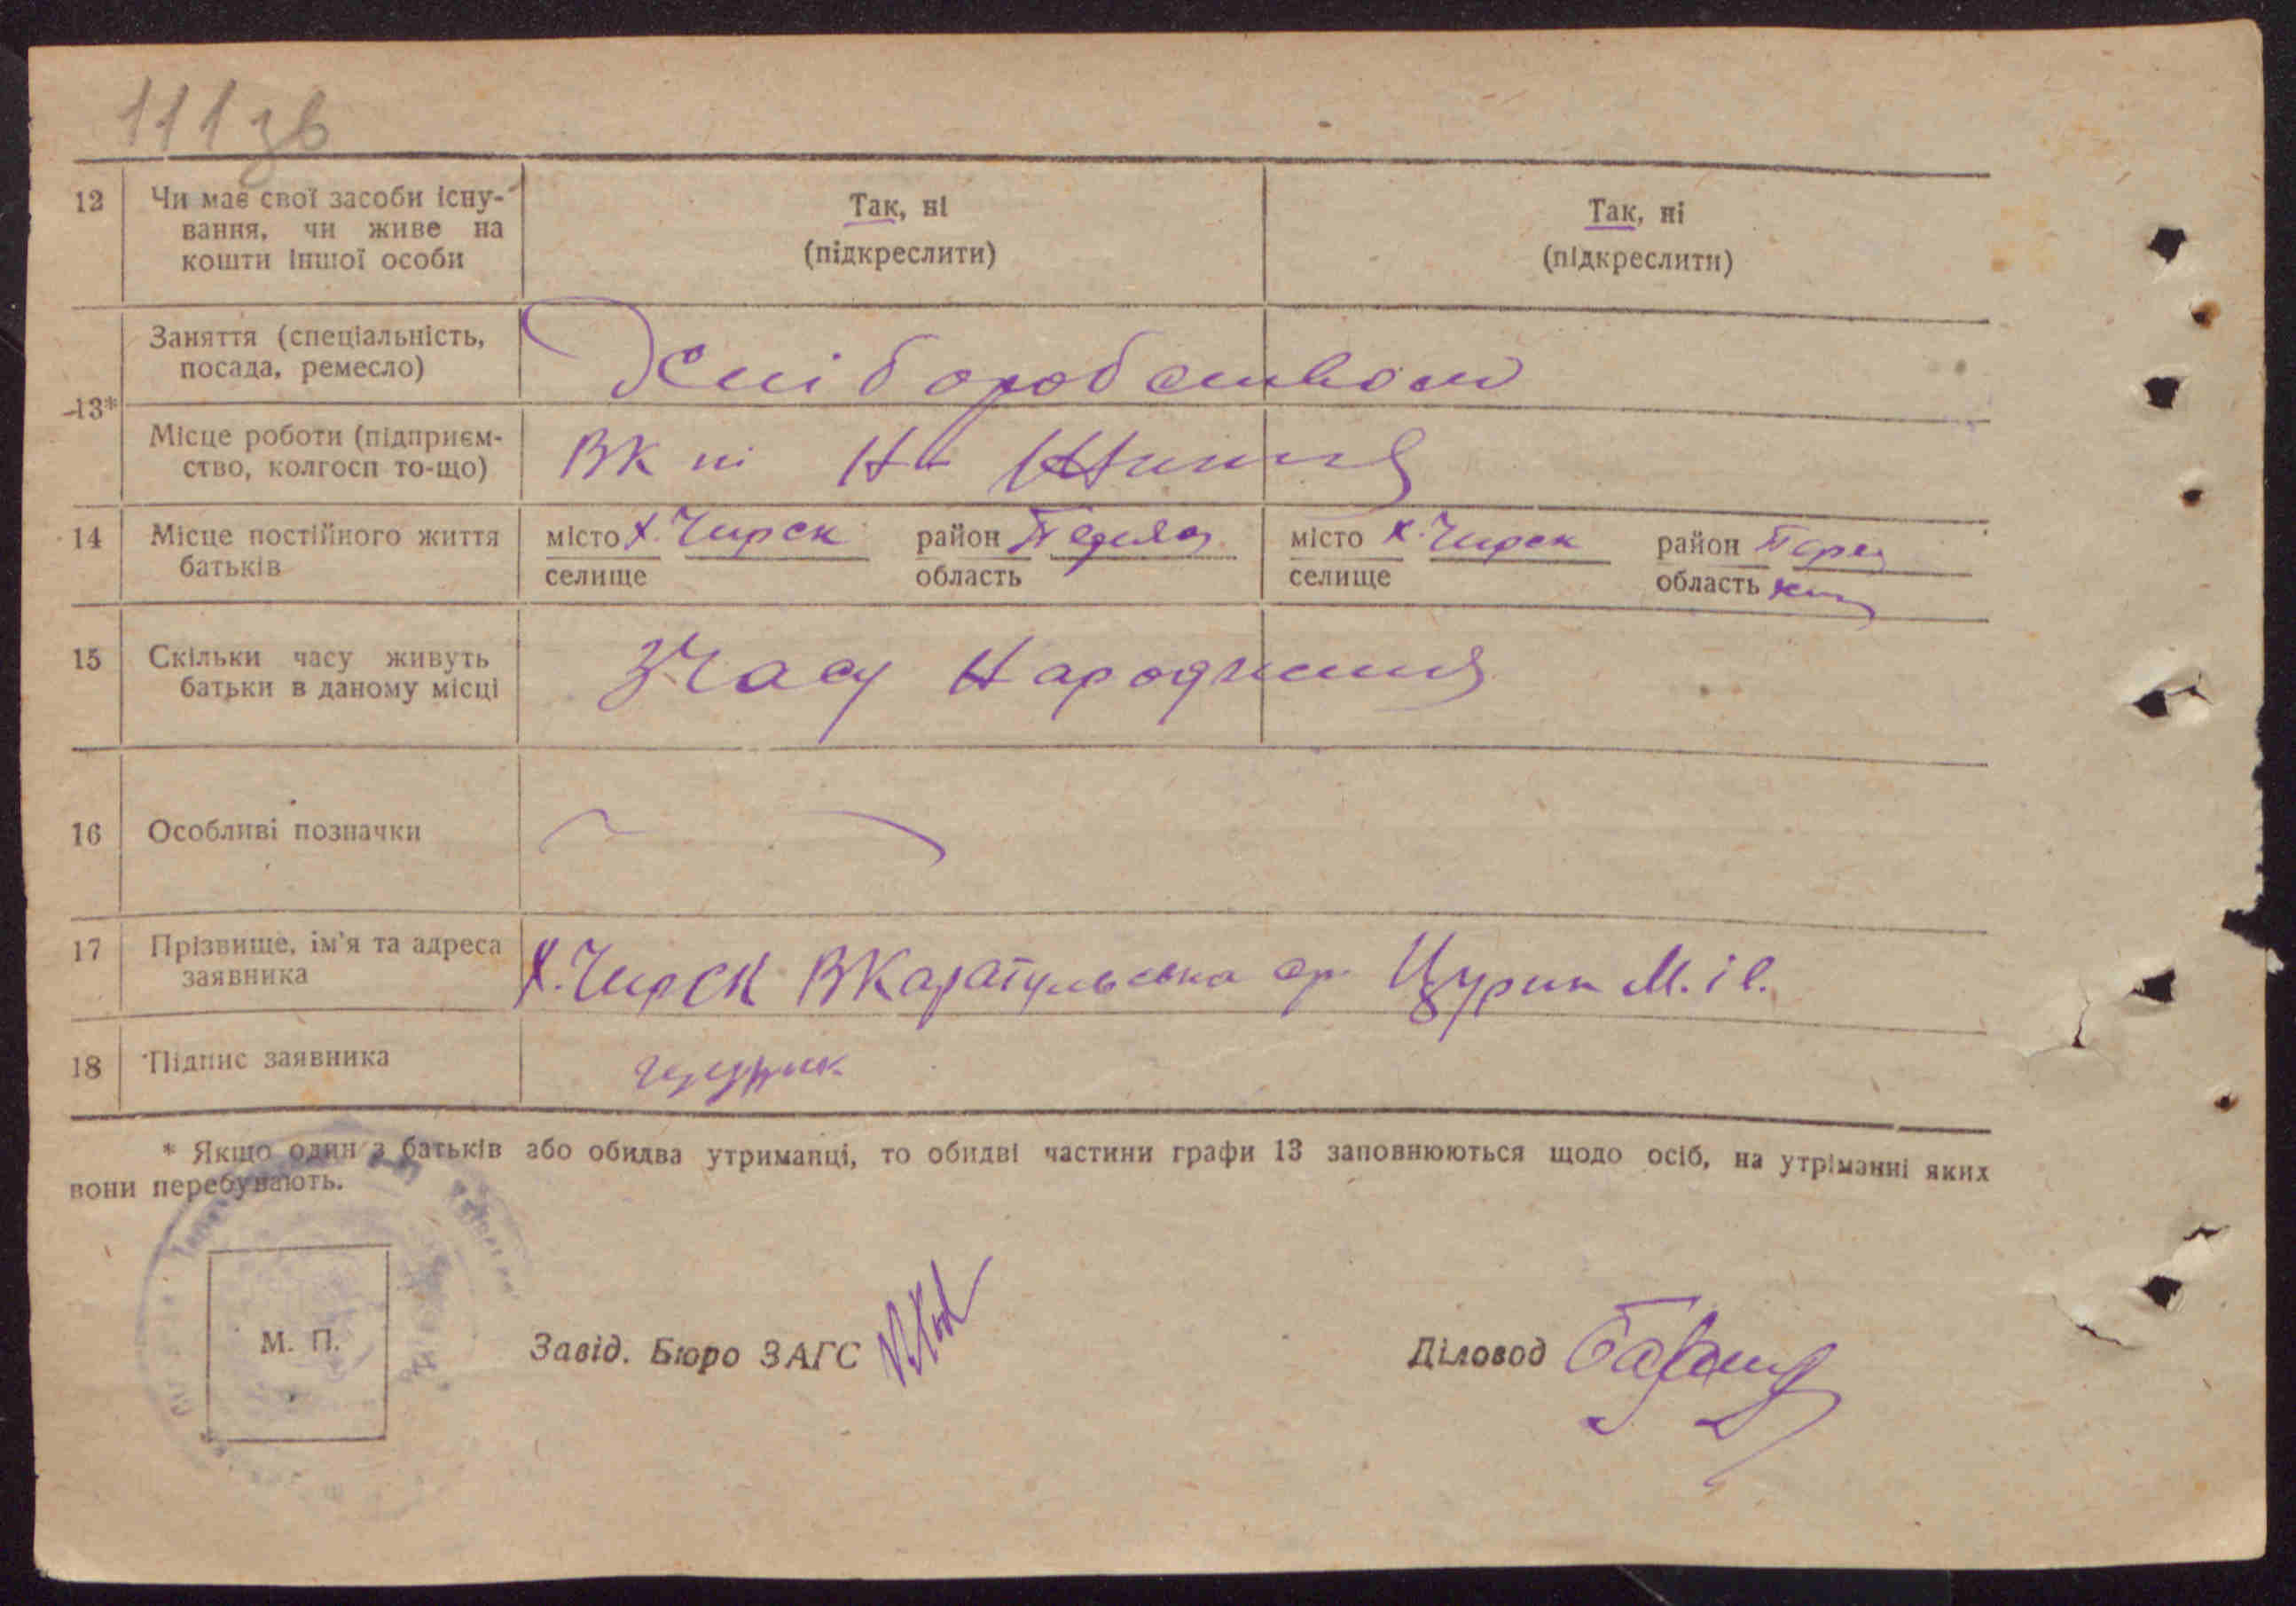 111 зв
12 Чи має свої засоби існу- Так, ні Так, ні
вання, чи живе на (підкреслити) (підкреслити)
кошти іншої особи
13* Заняття (спеціальність, Хліборобством
посада, ремесло)
Місце роботи (підприєм-
ство, колгосп то-що)
14 Місце постійного життя місто х. Чирск район місто х. Чирск район
батьків селище область селище область
15 Скільки часу живуть З Часу Народження
батьки в даному місці
16 Особливі позначки
17 Прізвище, ім'я та адреса х. Чирск ВКаратульська ср М. і в.
заявника
18 Підпис заявника
* Якщо один з батьків або обидва утриманці, то обидві частини графи 13 заповнюються щодо осіб, на утріманні яких
вони перебувають.
М. П. Завід. Бюро ЗАГС Діловод